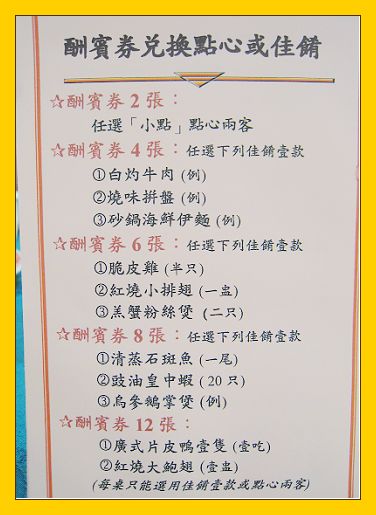 酬賓券兌換點心或佳餚
☆酬賓券 2 張：
任選「小點」點心兩客
☆酬賓券 4 張：任選下列佳餚壹款
①白灼牛肉 (例)
②燒味拼盤 (例)
③砂鍋海鮮伊麵 (例)
☆酬賓券 6 張：任選下列佳餚壹款
①脆皮雞 (半只)
②紅燒小排翅 (一盅)
③羔蟹粉絲煲 (二只)
☆酬賓券 8 張：任選下列佳餚壹款
①清蒸石斑魚 (一尾)
②豉油皇中蝦 (20 只)
③烏參鵝掌煲 (例)
☆酬賓券 12 張：
①廣式片皮鴨壹隻 (壹吃)
②紅燒大鮑翅 (壹盅)
(每桌只能選用佳餚壹款或點心兩客)